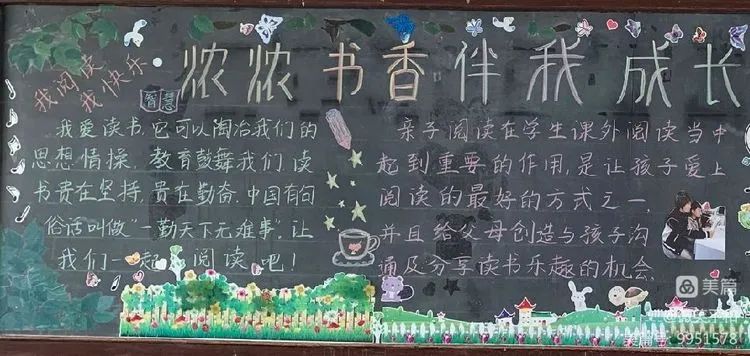 浓浓书香伴我成长
我阅读
我快乐
智慧
我爱读书,它可以陶冶我们的
思想情操。教育鼓舞我们读
书贵在坚持,贵在勤奋。中国有句
俗话叫做“一勤天下无难事”。让
我们一起阅读吧!
亲子阅读在学生课外阅读当中
起到重要的作用,是让孩子爱上
阅读的最好的方式之一,
并且给父母创造与孩子沟
通及分享读书乐趣的机会。
美篇
美篇号:9951578